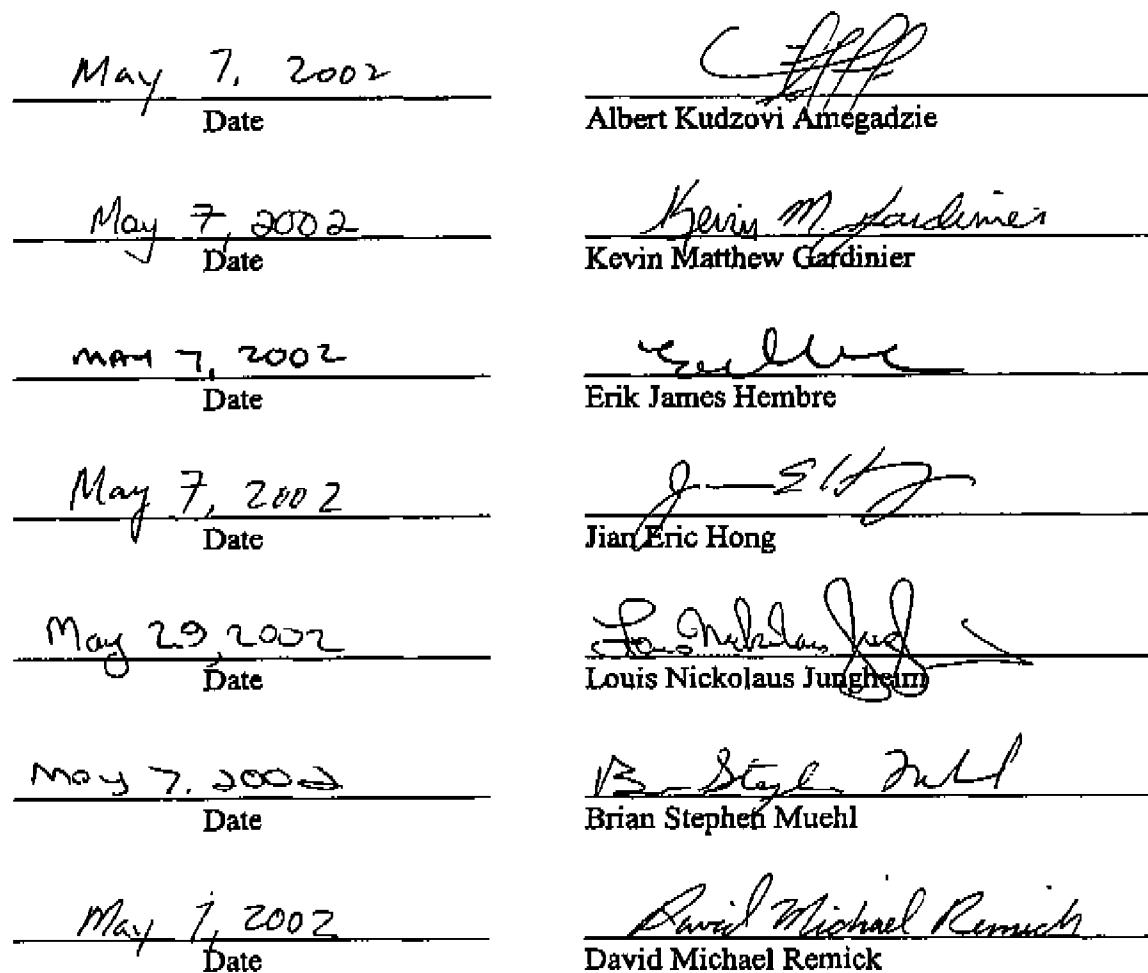 May 7, 2002
Date Albert Kudzovi Amegadzie
May 7, 2002 Kevin M. Gardinier
Date Kevin Matthew Gardinier
MAY 7, 2002
Date Erik James Hembre
May 7, 2002
Date Jian Eric Hong
May 29, 2002 Louis Nickolaus
Date Louis Nickolaus Jungheim
May 7, 2002
Date Brian Stephen Muehl
May 7, 2002 David Michael Remick
Date David Michael Remick